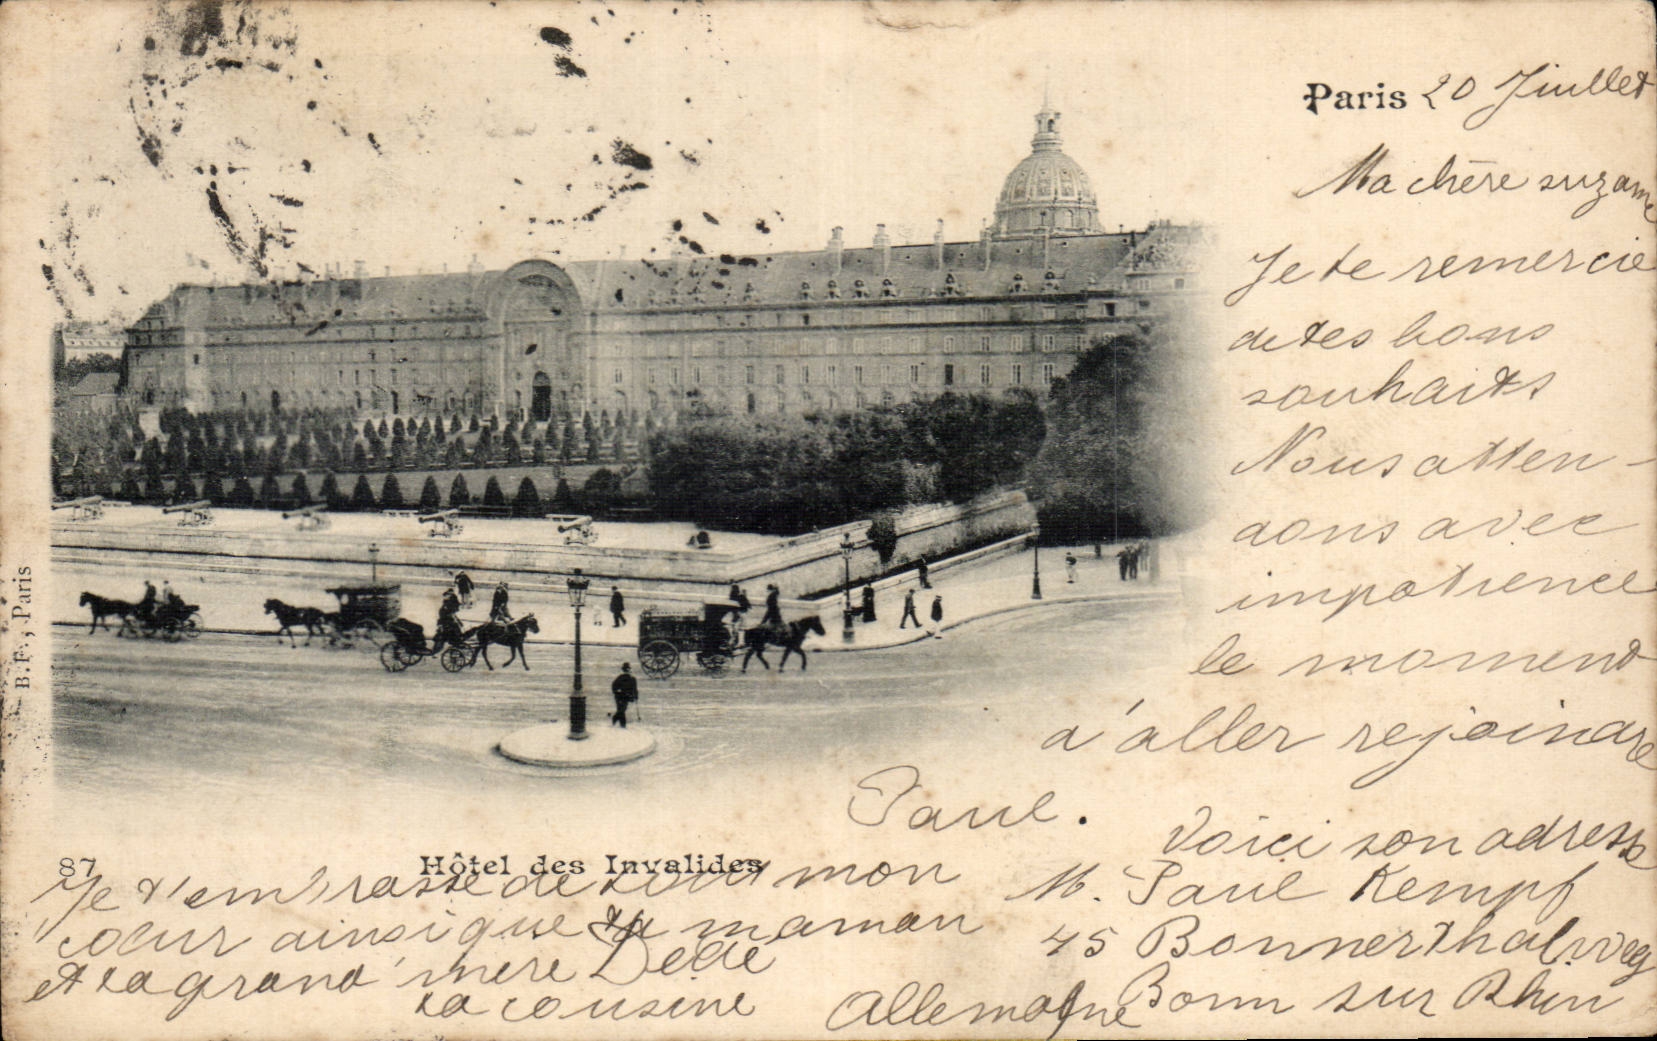 Paris 20 Juillet
Ma chère suzanne
Je te remercie
de tes bons
souhaits
Nous atten-
dons avec
impatience
le moment
d'aller rejoindre
Paul.
Voici son adresse
M. Paul Kempf
45 Bonnerthalweg
Bonn sur Rhin
Allemagne
87 Hôtel des Invalides
Je t'embrasse de tout mon
cœur ainsi que ta maman
et ta grand'mère Dédé
ta cousine
B.F., Paris